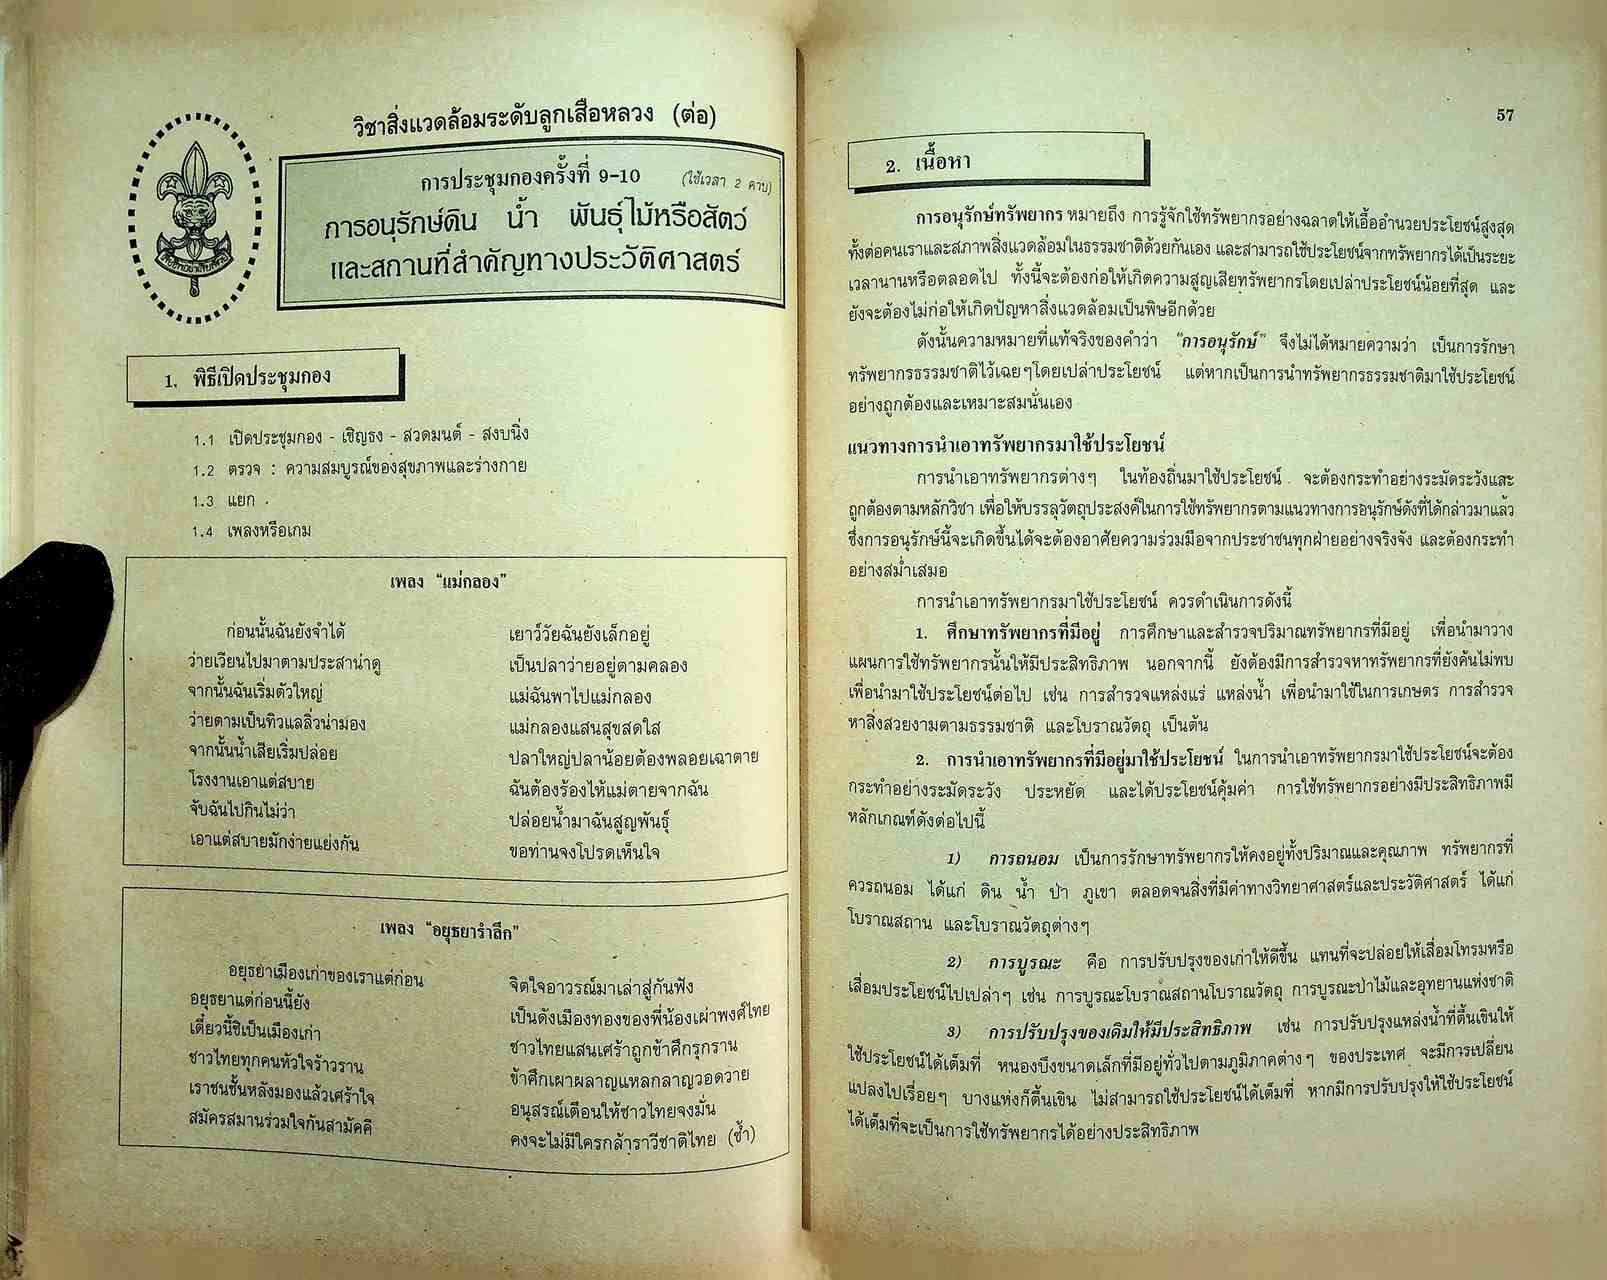 วิชาสิ่งแวดล้อมระดับลูกเสือหลวง (ต่อ)
การประชุมกองครั้งที่ 9-10 (ใช้เวลา 2 คาบ)
การอนุรักษ์ดิน น้ำ พันธุ์ไม้หรือสัตว์
และสถานที่สำคัญทางประวัติศาสตร์
1. พิธีเปิดประชุมกอง
1.1 เปิดประชุมกอง - เชิญธง - สวดมนต์ - สงบนิ่ง
1.2 ตรวจ : ความสมบูรณ์ของสุขภาพและร่างกาย
1.3 แยก
1.4 เพลงหรือเกม
เพลง "แม่กลอง"
ก่อนนั้นฉันยังจำได้ เยาว์วัยฉันยังเล็กอยู่
ว่ายเวียนไปมาตามประสาน่าดู เป็นปลาว่ายอยู่ตามคลอง
จากนั้นฉันเริ่มตัวใหญ่ แม่ฉันพาไปแม่กลอง
ว่ายตามเป็นทิวแลลิ่วน่ามอง แม่กลองแสนสุขสดใส
จากนั้นน้ำเสียเริ่มปล่อย ปลาใหญ่ปลาน้อยต้องพลอยเฉาตาย
โรงงานเอาแต่สบาย ฉันต้องร้องไห้แม่ตายจากฉัน
จับฉันไปกินไม่ว่า ปล่อยน้ำมาฉันสูญพันธุ์
เอาแต่สบายมักง่ายแย่งกัน ขอท่านจงโปรดเห็นใจ
เพลง "อยุธยารำลึก"
อยุธยาเมืองเก่าของเราแต่ก่อน จิตใจอาวรณ์มาเล่าสู่กันฟัง
อยุธยาแต่ก่อนนี้ยัง เป็นดังเมืองทองของพี่น้องเผ่าพงศ์ไทย
เดี๋ยวนี้ซิเป็นเมืองเก่า ชาวไทยแสนเศร้าถูกข้าศึกรุกราน
ชาวไทยทุกคนหัวใจร้าวราน ข้าศึกเผาผลาญแหลกลาญวอดวาย
เราชนชั้นหลังมองแล้วเศร้าใจ อนุสรณ์เตือนให้ชาวไทยจงมั่น
สมัครสมานร่วมใจกันสามัคคี คงจะไม่มีใครกล้าราวีชาติไทย (ซ้ำ)
57
2. เนื้อหา
การอนุรักษ์ทรัพยากร หมายถึง การรู้จักใช้ทรัพยากรอย่างฉลาดให้เอื้ออำนวยประโยชน์สูงสุด
ทั้งต่อคนเราและสภาพสิ่งแวดล้อมในธรรมชาติด้วยกันเอง และสามารถใช้ประโยชน์จากทรัพยากรได้เป็นระยะ
เวลานานหรือตลอดไป ทั้งนี้จะต้องก่อให้เกิดความสูญเสียทรัพยากรโดยเปล่าประโยชน์น้อยที่สุด และ
ยังจะต้องไม่ก่อให้เกิดปัญหาสิ่งแวดล้อมเป็นพิษอีกด้วย
ดังนั้นความหมายที่แท้จริงของคำว่า "การอนุรักษ์" จึงไม่ได้หมายความว่า เป็นการรักษา
ทรัพยากรธรรมชาติไว้เฉยๆโดยเปล่าประโยชน์ แต่หากเป็นการนำทรัพยากรธรรมชาติมาใช้ประโยชน์
อย่างถูกต้องและเหมาะสมนั่นเอง
แนวทางการนำเอาทรัพยากรมาใช้ประโยชน์
การนำเอาทรัพยากรต่างๆ ในท้องถิ่นมาใช้ประโยชน์ จะต้องกระทำอย่างระมัดระวังและ
ถูกต้องตามหลักวิชา เพื่อให้บรรลุวัตถุประสงค์ในการใช้ทรัพยากรตามแนวทางการอนุรักษ์ดังที่ได้กล่าวมาแล้ว
ซึ่งการอนุรักษ์นี้จะเกิดขึ้นได้จะต้องอาศัยความร่วมมือจากประชาชนทุกฝ่ายอย่างจริงจัง และต้องกระทำ
อย่างสม่ำเสมอ
การนำเอาทรัพยากรมาใช้ประโยชน์ ควรดำเนินการดังนี้
1. ศึกษาทรัพยากรที่มีอยู่ การศึกษาและสำรวจปริมาณทรัพยากรที่มีอยู่ เพื่อนำมาวาง
แผนการใช้ทรัพยากรนั้นให้มีประสิทธิภาพ นอกจากนี้ ยังต้องมีการสำรวจหาทรัพยากรที่ยังค้นไม่พบ
เพื่อนำมาใช้ประโยชน์ต่อไป เช่น การสำรวจแหล่งแร่ แหล่งน้ำ เพื่อนำมาใช้ในการเกษตร การสำรวจ
หาสิ่งสวยงามตามธรรมชาติ และโบราณวัตถุ เป็นต้น
2. การนำเอาทรัพยากรที่มีอยู่มาใช้ประโยชน์ ในการนำเอาทรัพยากรมาใช้ประโยชน์จะต้อง
กระทำอย่างระมัดระวัง ประหยัด และได้ประโยชน์คุ้มค่า การใช้ทรัพยากรอย่างมีประสิทธิภาพมี
หลักเกณฑ์ดังต่อไปนี้
1) การถนอม เป็นการรักษาทรัพยากรให้คงอยู่ทั้งปริมาณและคุณภาพ ทรัพยากรที่
ควรถนอม ได้แก่ ดิน น้ำ ป่า ภูเขา ตลอดจนสิ่งที่มีค่าทางวิทยาศาสตร์และประวัติศาสตร์ ได้แก่
โบราณสถาน และโบราณวัตถุต่างๆ
2) การบูรณะ คือ การปรับปรุงของเก่าให้ดีขึ้น แทนที่จะปล่อยให้เสื่อมโทรมหรือ
เสื่อมประโยชน์ไปเปล่าๆ เช่น การบูรณะโบราณสถานโบราณวัตถุ การบูรณะป่าไม้และอุทยานแห่งชาติ
3) การปรับปรุงของเดิมให้มีประสิทธิภาพ เช่น การปรับปรุงแหล่งน้ำที่ตื้นเขินให้
ใช้ประโยชน์ได้เต็มที่ หนองบึงขนาดเล็กที่มีอยู่ทั่วไปตามภูมิภาคต่างๆ ของประเทศ จะมีการเปลี่ยน
แปลงไปเรื่อยๆ บางแห่งก็ตื้นเขิน ไม่สามารถใช้ประโยชน์ได้เต็มที่ หากมีการปรับปรุงให้ใช้ประโยชน์
ได้เต็มที่จะเป็นการใช้ทรัพยากรได้อย่างประสิทธิภาพ